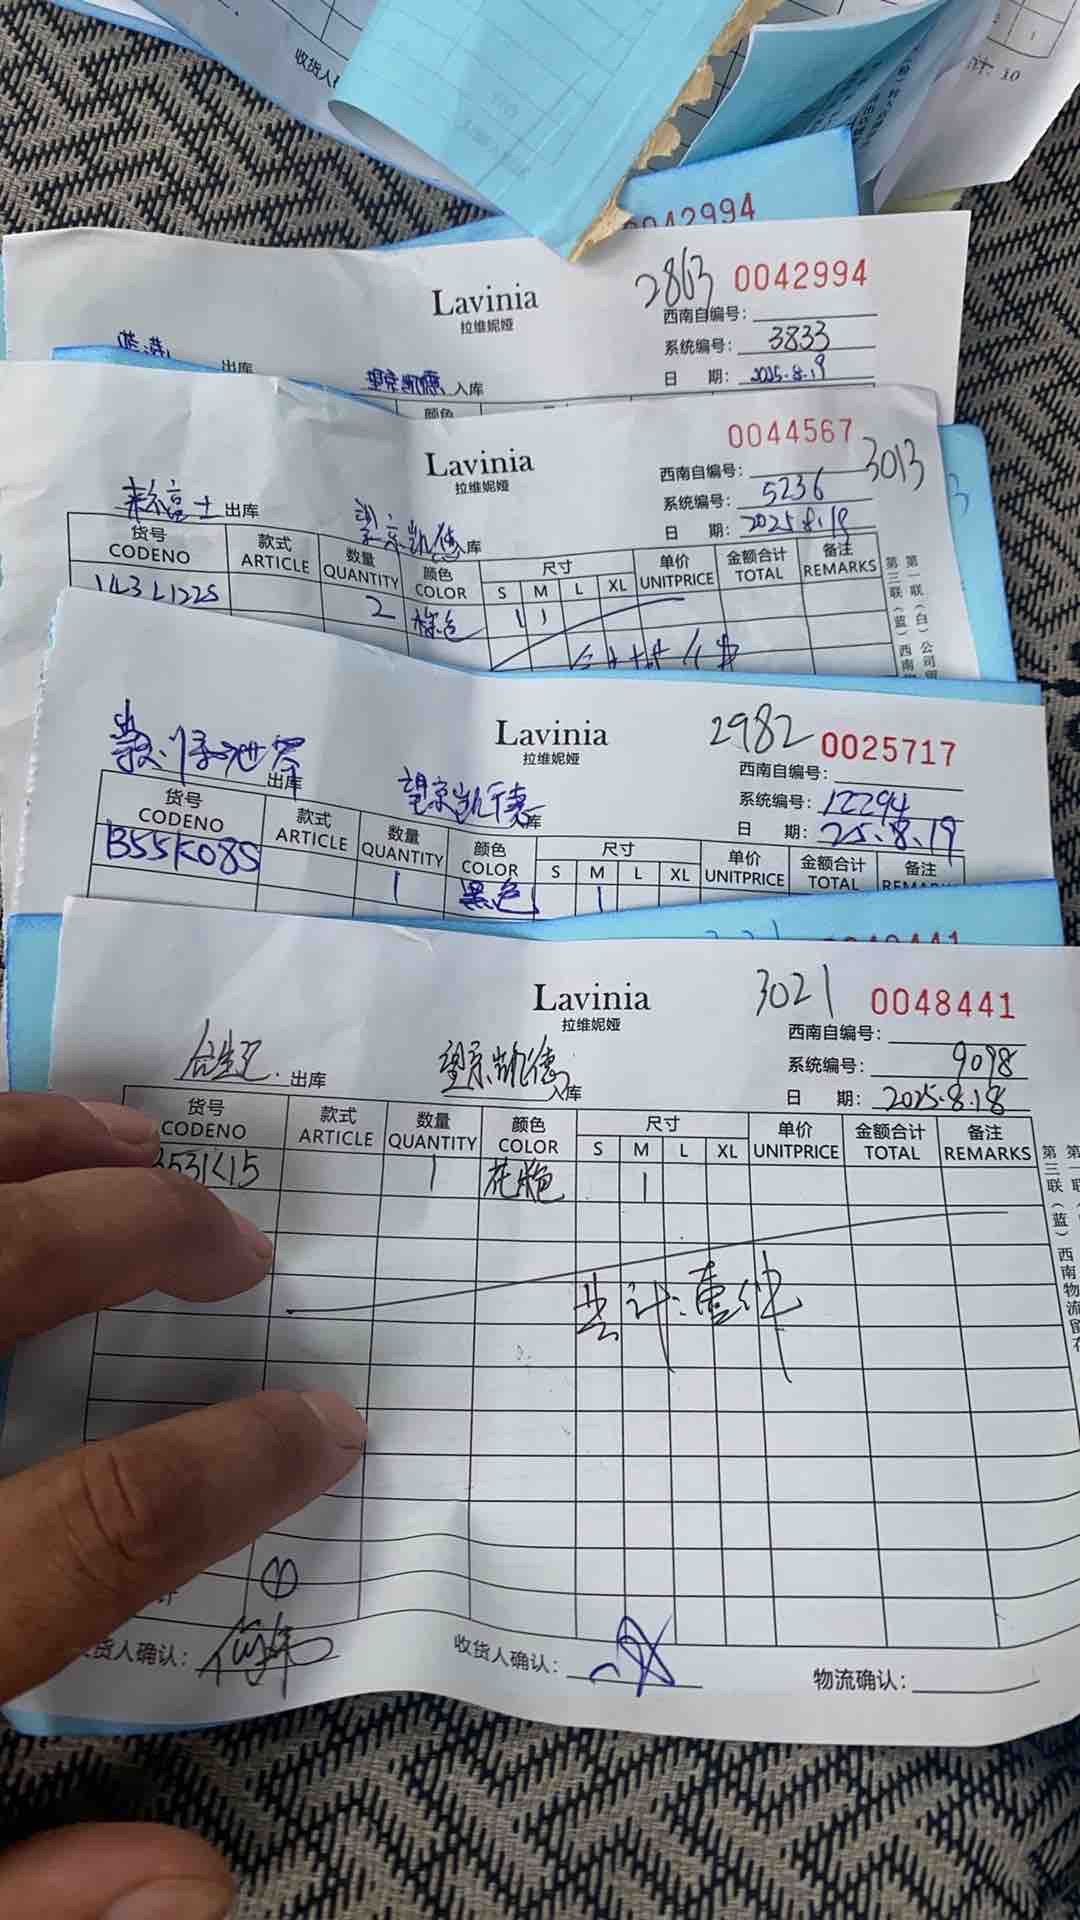 收货人
计: 10
0042994
2863 0042994
Lavinia
拉维妮娅
西南自编号:
系统编号: 3833
日 期: 2025.8.19
出库
望京凯德 入库
颜色
0044567
3013
Lavinia
拉维妮娅
西南自编号:
系统编号: 5236
日 期: 2025.8.19
出库
望京凯德 入库
货号 款式 数量 颜色 尺寸 单价 金额合计 备注
CODENO ARTICLE QUANTITY COLOR S M L XL UNITPRICE TOTAL REMARKS
143L122S 2 棕色 1 1
第一联(白)公司
第三联(蓝)西南
2982 0025717
Lavinia
拉维妮娅
西南自编号:
系统编号: 12294
日 期: 25.8.19
出库
望京凯德 入库
货号 款式 数量 颜色 尺寸 单价 金额合计 备注
CODENO ARTICLE QUANTITY COLOR S M L XL UNITPRICE TOTAL REMARKS
B55K08S 1 黑色 1
3021 0048441
Lavinia
拉维妮娅
西南自编号:
系统编号: 9098
日 期: 2025.8.18
出库
望京凯德 入库
货号 款式 数量 颜色 尺寸 单价 金额合计 备注
CODENO ARTICLE QUANTITY COLOR S M L XL UNITPRICE TOTAL REMARKS
531K15 1 花色 1
共计:壹件
第三联(蓝)西南物流留存
收货人确认:
物流确认: